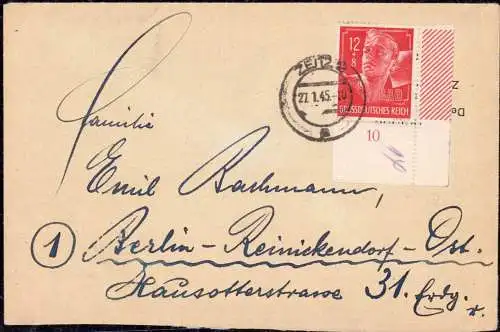 12+8
RAD
GROSSDEUTSCHES REICH
10
ZEITZ 2
27.1.45.
a
Familie
Emil Bachmann,
1 Berlin-Reinickendorf-Ost.
Hausotterstrasse 31. Erdg.